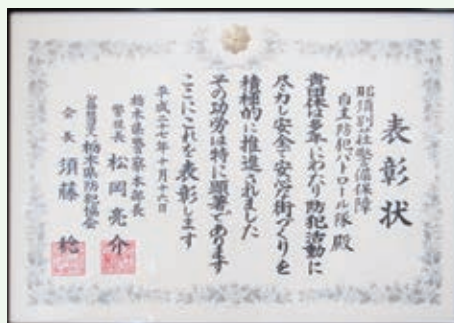 表彰状
那須別荘警備保障
自主防犯パトロール隊 殿
貴団体は多年にわたり防犯活動に
尽力し安全で安心な街づくりを
積極的に推進されました
その功労は特に顕著であります
ここにこれを表彰します
平成二十七年十月十六日
栃木県警察本部長
警視長 松岡亮介
栃木県防犯協会
会長 須藤 稔